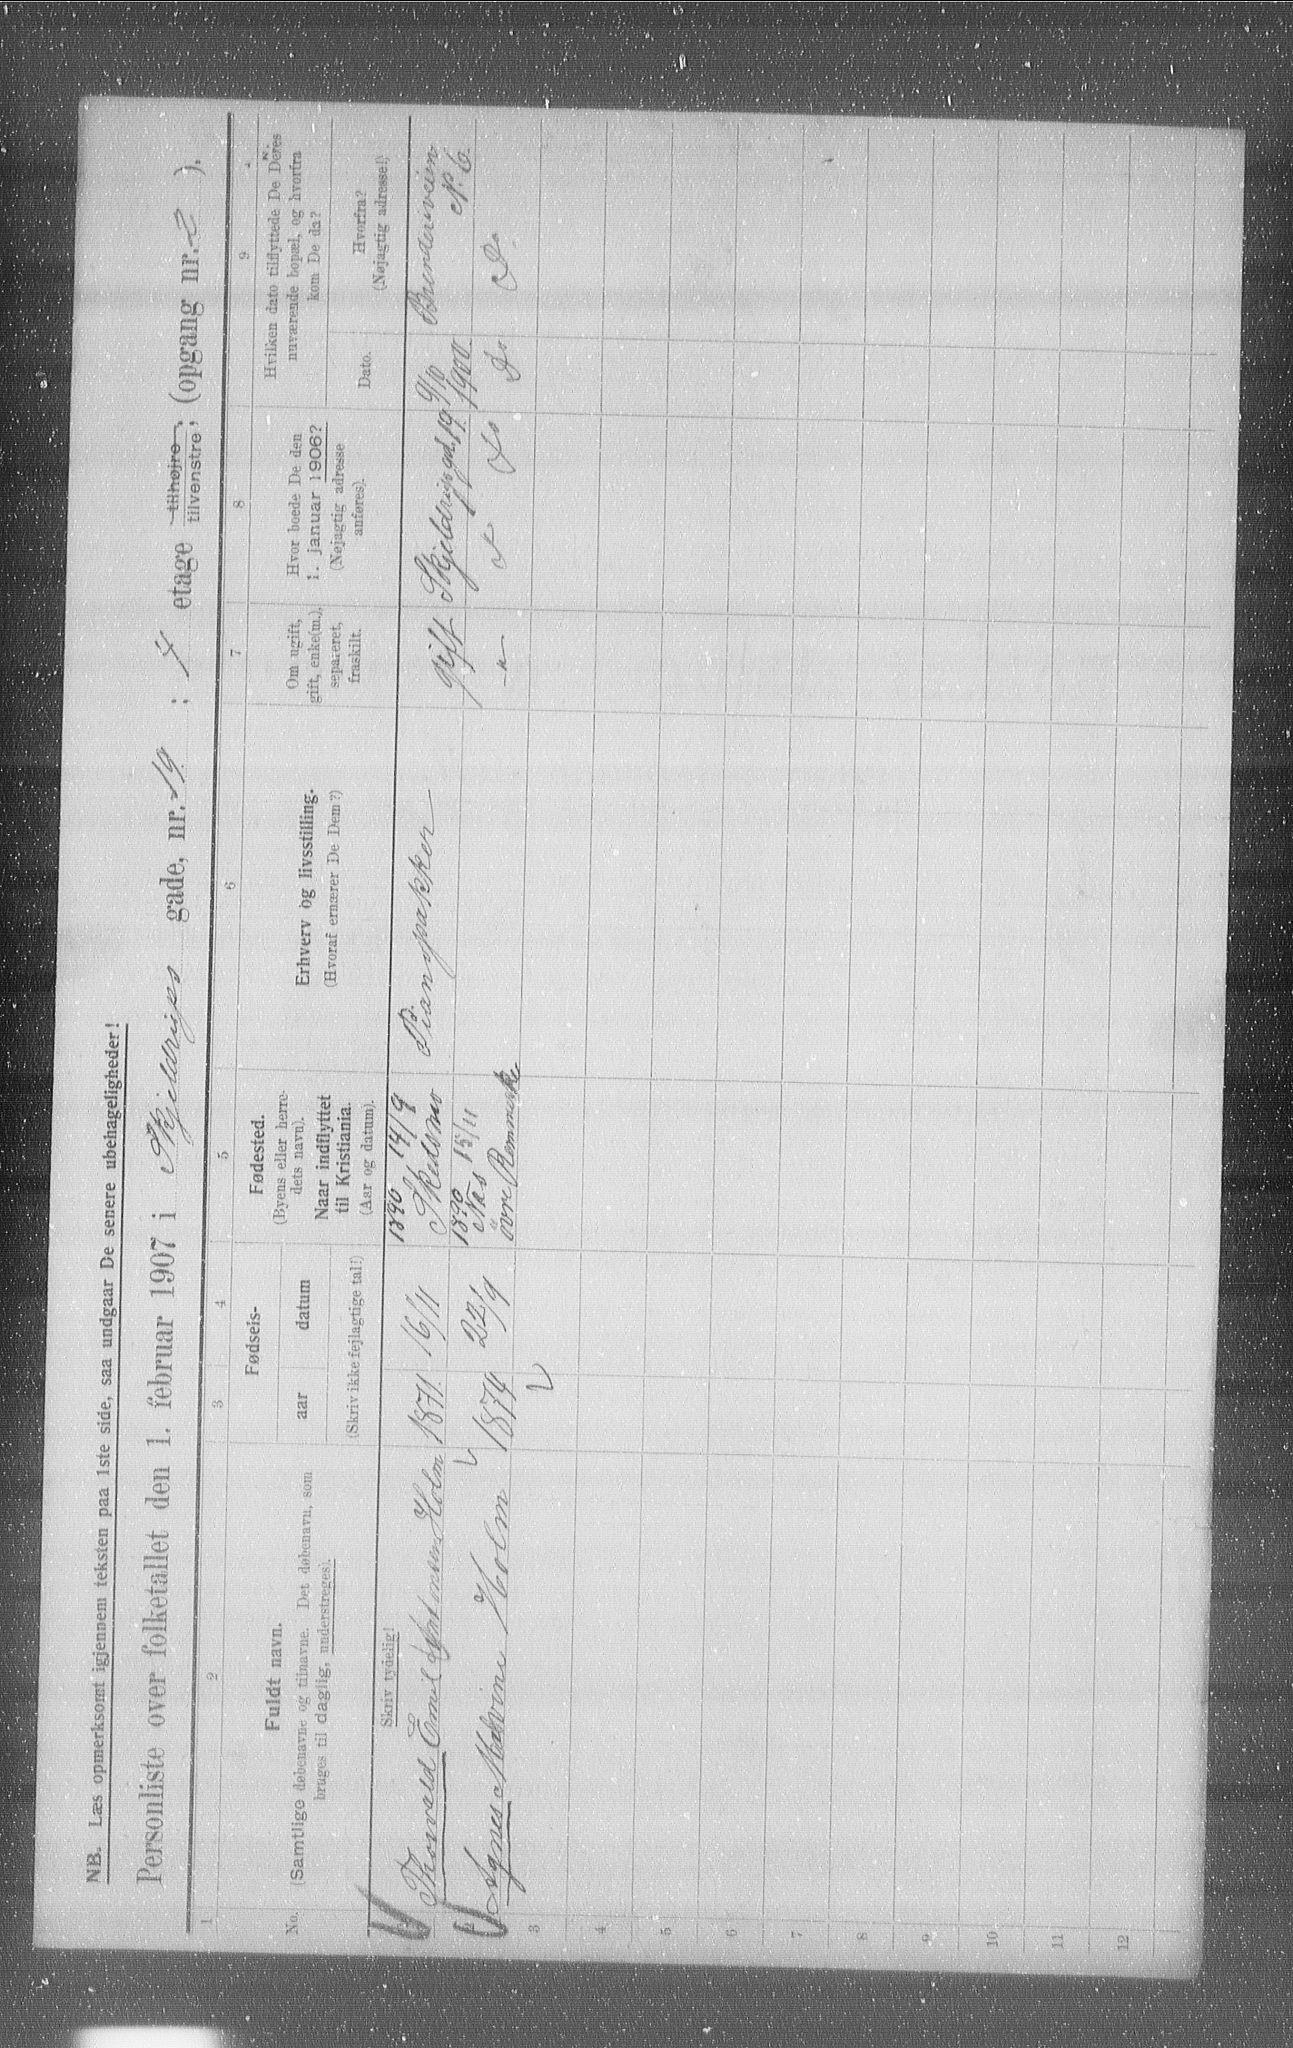 NB. Læs opmerksomt igjennem teksten paa 1ste side, saa undgaar De senere ubehageligheder!
Personliste over folketallet den 1. februar 1907 i Skjeldrups gade, nr. 19 ; 4 etage tilhøjre, tilvenstre, (opgang nr. 2 ).
1 2 3 4 5 6 7 8 9
No.
Fuldt navn.
(Samtlige døbenavne og tilnavne. Det døbenavn, som
bruges til daglig, understreges).
Skriv tydelig!
Fødsels-
aar datum
(Skriv ikke fejlagtige tal!)
Fødested.
(Byens eller herre-
dets navn).
Naar indflyttet
til Kristiania.
(Aar og datum).
Erhverv og livsstilling.
(Hvoraf ernærer De Dem?)
Om ugift,
gift, enke(m.),
separeret,
fraskilt.
Hvor boede De den
1. januar 1906?
(Nøjagtig adresse
anføres).
Hvilken dato tilflyttede De Deres
nuværende bopæl, og hvorfra
kom De da?
Dato.
Hvorfra?
(Nøjagtig adresse!)
Thorvald Emil Holm 1871 16/11 1890 14/9 Skedsmo Gift Skjeldrups gd. 19 9/10 1900 N. 6.
Agnes Malvine Holm 1874 22/9 1890 15/11 Næs øvre Romerike -"- Do Do Do
3
4
5
6
7
8
9
10
11
12